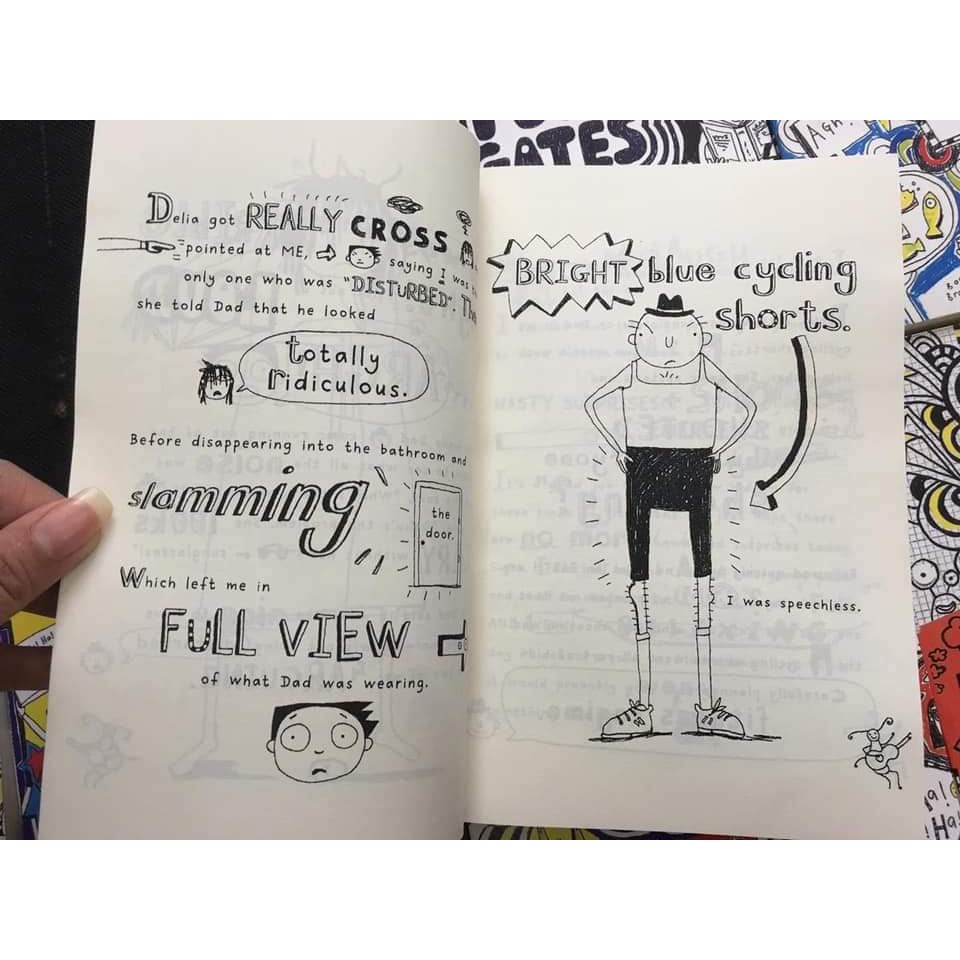 Delia got REALLY CROSS
pointed at ME, saying I was
only one who was "DISTURBED".
she told Dad that he looked
totally
ridiculous.
Before disappearing into the bathroom and
slamming the
door.
Which left me in
FULL VIEW
of what Dad was wearing.
BRIGHT blue cycling
shorts.
I was speechless.
EATES
AGH!
Ha!